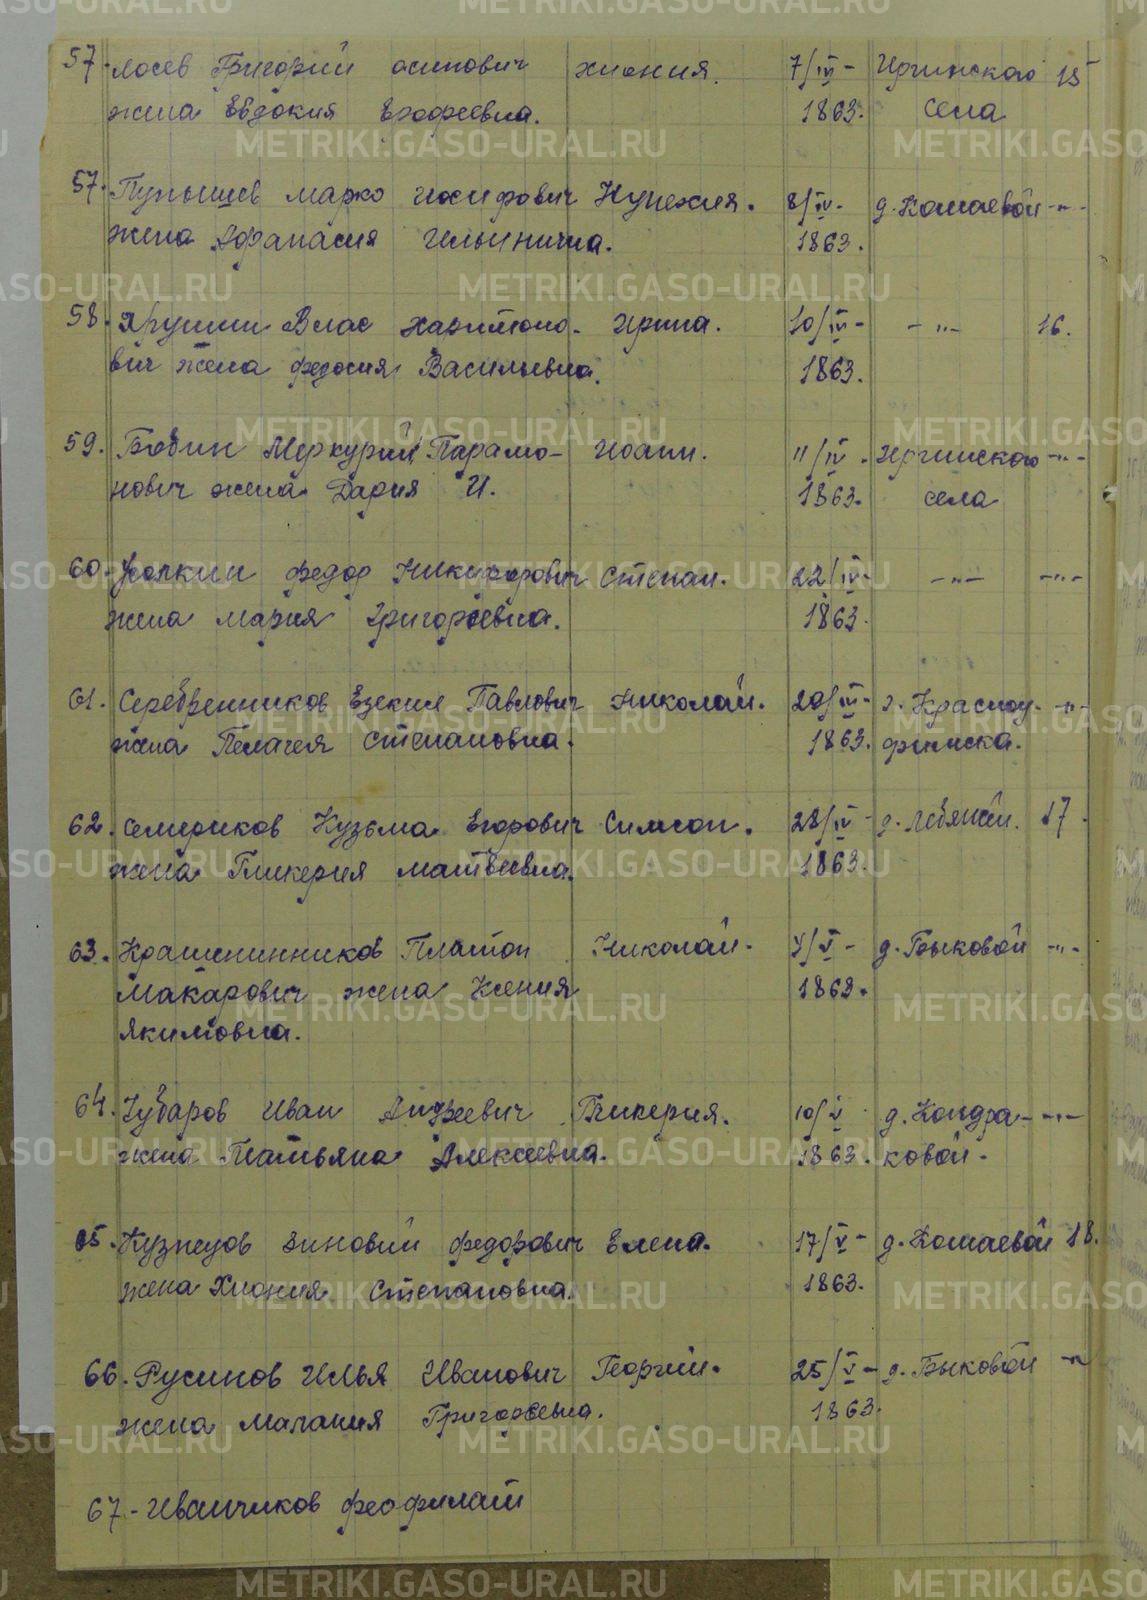 57. Лосев Григорий Осипович Хиония. 7/IV- Иргинского 15
жена Евдокия Ерофеевна. 1863. села
57. Пупышев Марко Иосифович 8/IV- д. Комаевой -"-
жена Афанасия Ильинична. 1863.
58. Ярушин Влас Харитоно- Ирина. 10/IV- -"- 16.
вич жена Федосия Васильевна. 1863.
59. Бабин Меркурий Парамо- Иоанн. 11/IV. Иргинского -"-
нович жена Дария И. 1863. села
60. Федор Никифорович Степан. 22/IV- -"- -"-
жена Мария Григорьевна. 1863.
61. Серебренников Езекил Павлович Николай. 20/IV- г. Красноу- -"-
жена Пелагея Степановна. 1863. фимска.
62. Семериков Кузьма Егорович Симеон. 28/IV- д. Лебяжей. 17.
жена Гликерия Матвеевна. 1863.
63. Крашенинников Платон Николай. /V- д. Быковой -"-
Макарович жена Ксения 1863.
Якимовна.
64. Зубаров Иван Андреевич Гликерия. 10/V д. Кондра- -"-
жена Татьяна Алексеевна. 1863. ковой.
65. Кузнецов Зиновий Федорович Елена. 17/V- д. Комаевой 18.
жена Хиония Степановна. 1863.
66. Русинов Илья Иванович Георгий. 25/V- д. Быковой -"-
жена Малания Григорьевна. 1863.
67.- Иванчиков Феофилат
METRIKI.GASO-URAL.RU